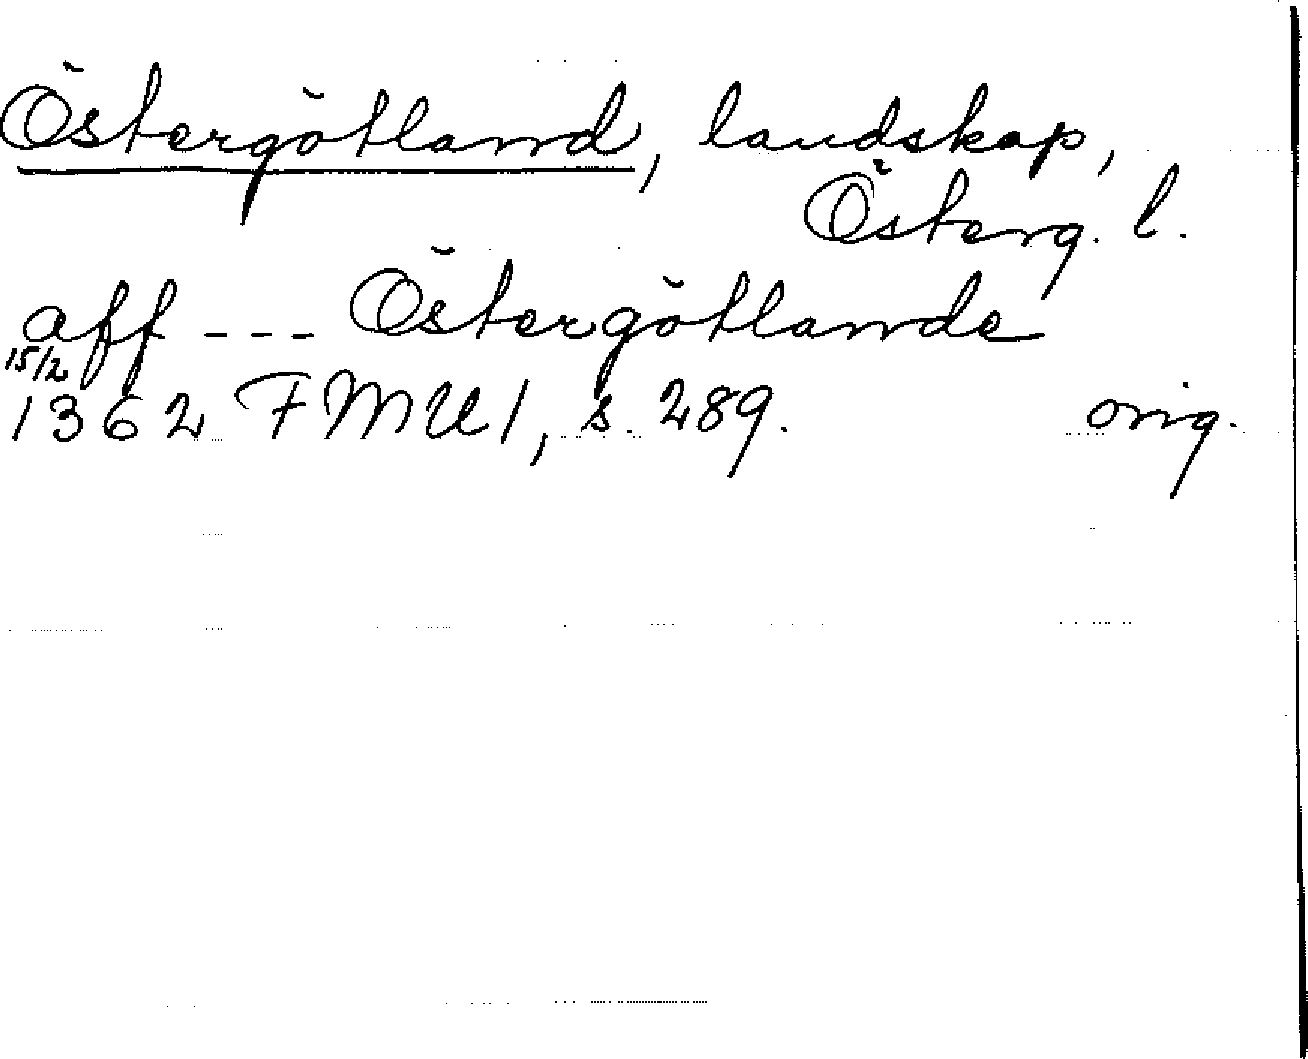 Östergötland, landskap,
Österg. l.
aff --- Östergötlande
15/2
1362 FMU 1, s. 289. orig.